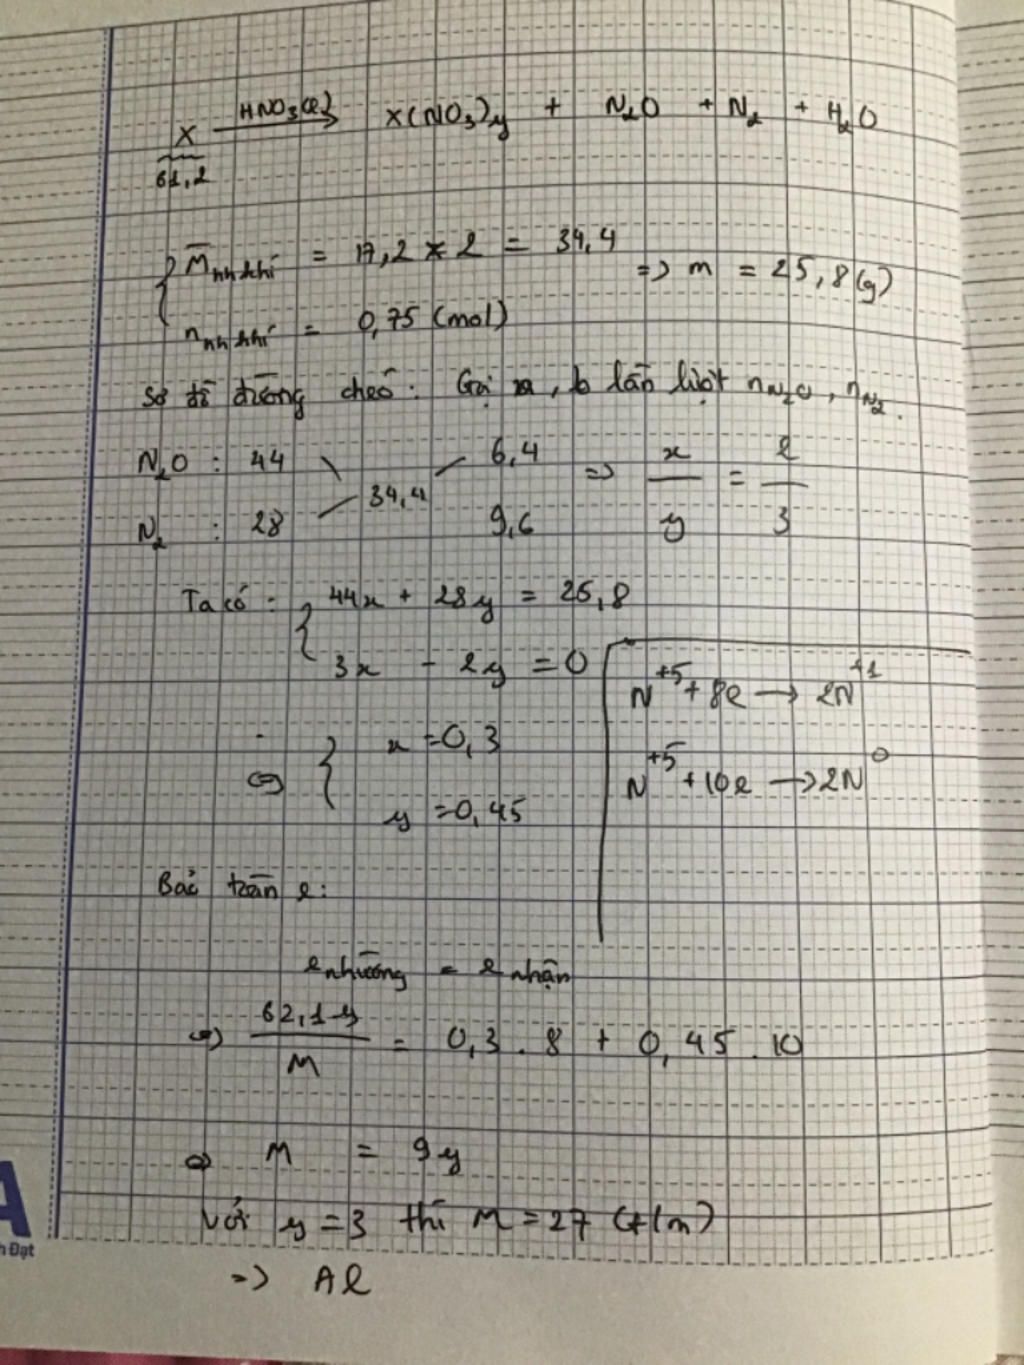 X HNO3(l) → X(NO3)y + N2O + N2 + H2O
61,2
M̄nh khí = 17,2 × 2 = 34,4
=> m = 25,8 (g)
nnh khí = 0,75 (mol)
Sơ đồ đường chéo: Gọi a, b lần lượt nN2O, nN2.
N2O : 44 6,4
34,4 => x/y = 2/3
N2 : 28 9,6
Ta có: { 44x + 28y = 25,8
3x - 2y = 0
<=> { x = 0,3
y = 0,45
N+5 + 8e → 2N+1
N+5 + 10e → 2N0
Bảo toàn e:
e nhường = e nhận
<=> 62,1.y/M = 0,3 . 8 + 0,45 . 10
=> M = 9y
Với y = 3 thì M = 27 (t/m)
=> Al
A
h Đạt